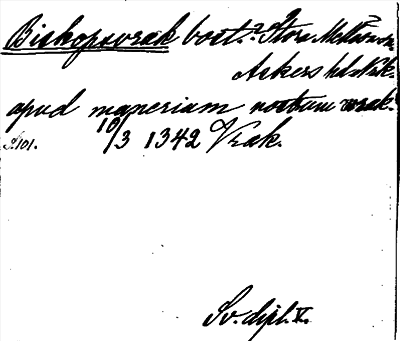 Biskopsvrak bost. ? Stora Mellösa sn.
Askers hd. Närk.
apud manerium nostrum vrak.
10/3 1342 Vrak.
S. 101.
Sv. dipl. V.